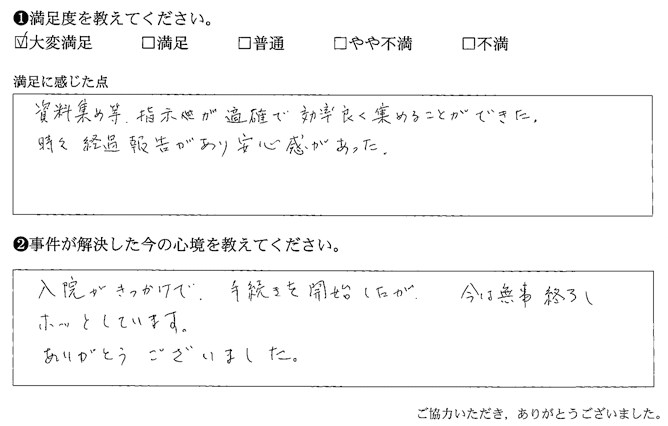 ❶満足度を教えてください。
☑大変満足 □満足 □普通 □やや不満 □不満
満足に感じた点
資料集め等、指示が適確で効率良く集めることができた。
時々経過報告があり安心感があった。
❷事件が解決した今の心境を教えてください。
入院がきっかけで、手続きを開始したが、今は無事終了し
ホッとしています。
ありがとうございました。
ご協力いただき，ありがとうございました。